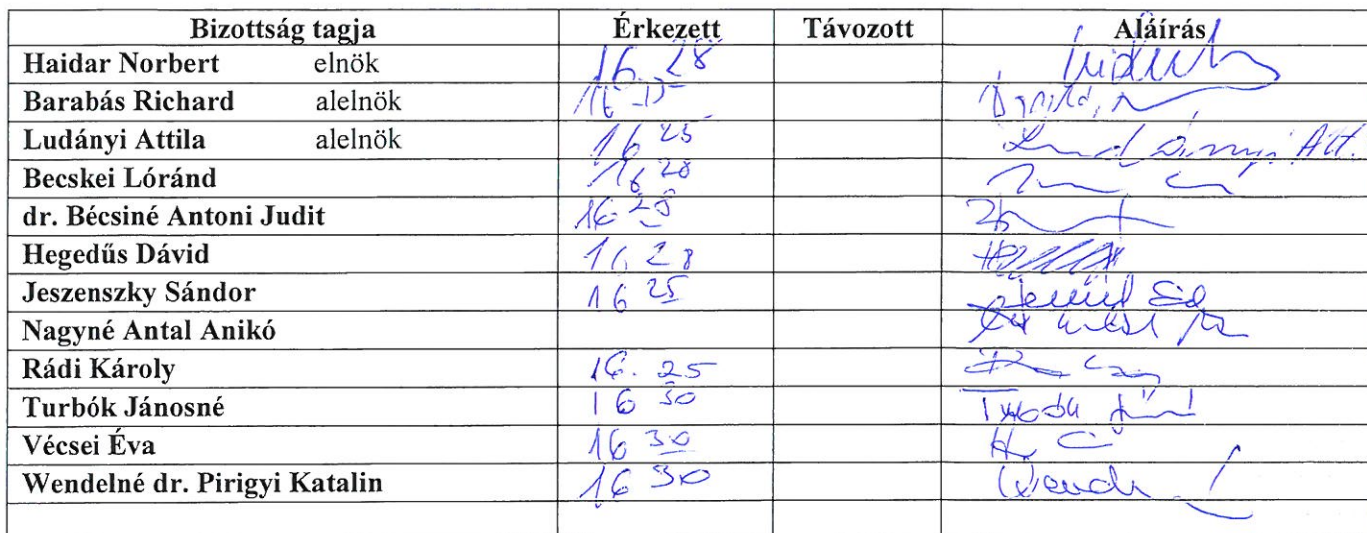 Bizottság tagja Érkezett Távozott Aláírás
Haidar Norbert elnök 16. 28
Barabás Richard alelnök 16
Ludányi Attila alelnök 16 25 Ludányi Att.
Becskei Lóránd 16 20
dr. Bécsiné Antoni Judit 16
Hegedűs Dávid 16 28
Jeszenszky Sándor 16 25
Nagyné Antal Anikó
Rádi Károly 16. 25
Turbók Jánosné 16 30
Vécsei Éva 16 30
Wendelné dr. Pirigyi Katalin 16 30